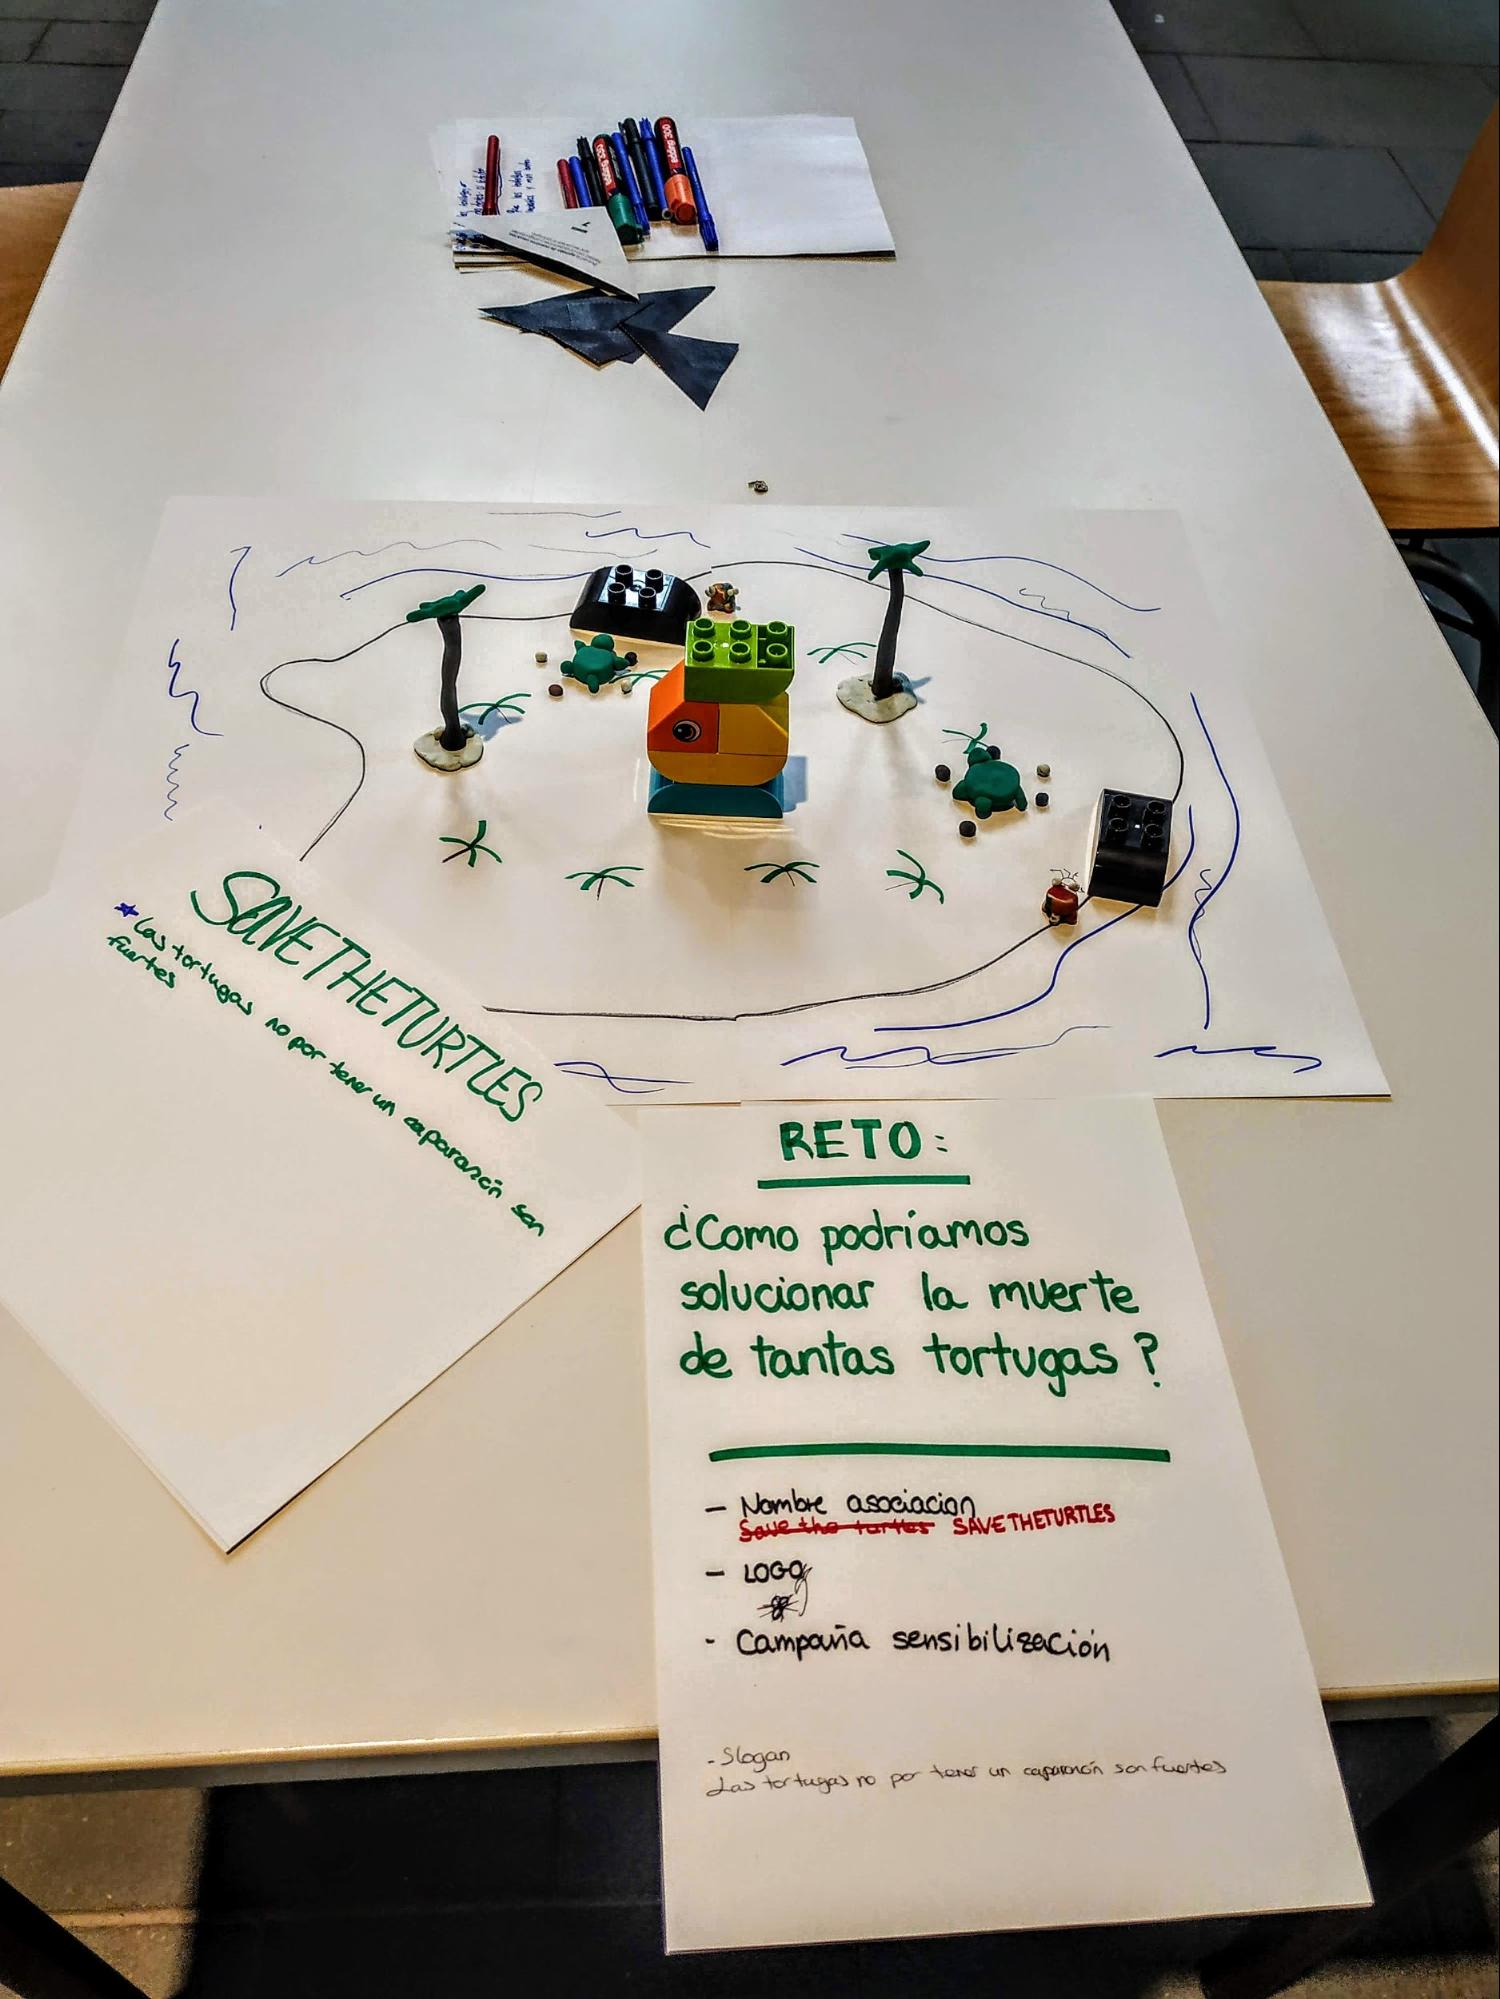 edding 300
edding 300
SAVETHETURTLES
Las tortugas no por tener un caparazón son
fuertes
RETO:
¿Como podríamos
solucionar la muerte
de tantas tortugas?
- Nombre asociacion
Save the turtles SAVETHETURTLES
- LOGO
- Campaña sensibilización
- Slogan
Las tortugas no por tener un caparazón son fuertes